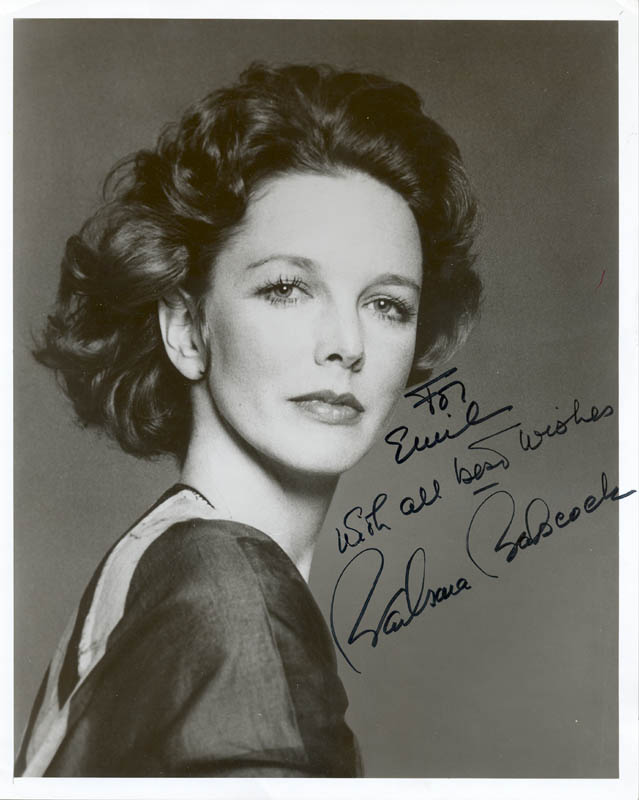 For
Emil
With all best wishes
Barbara Babcock